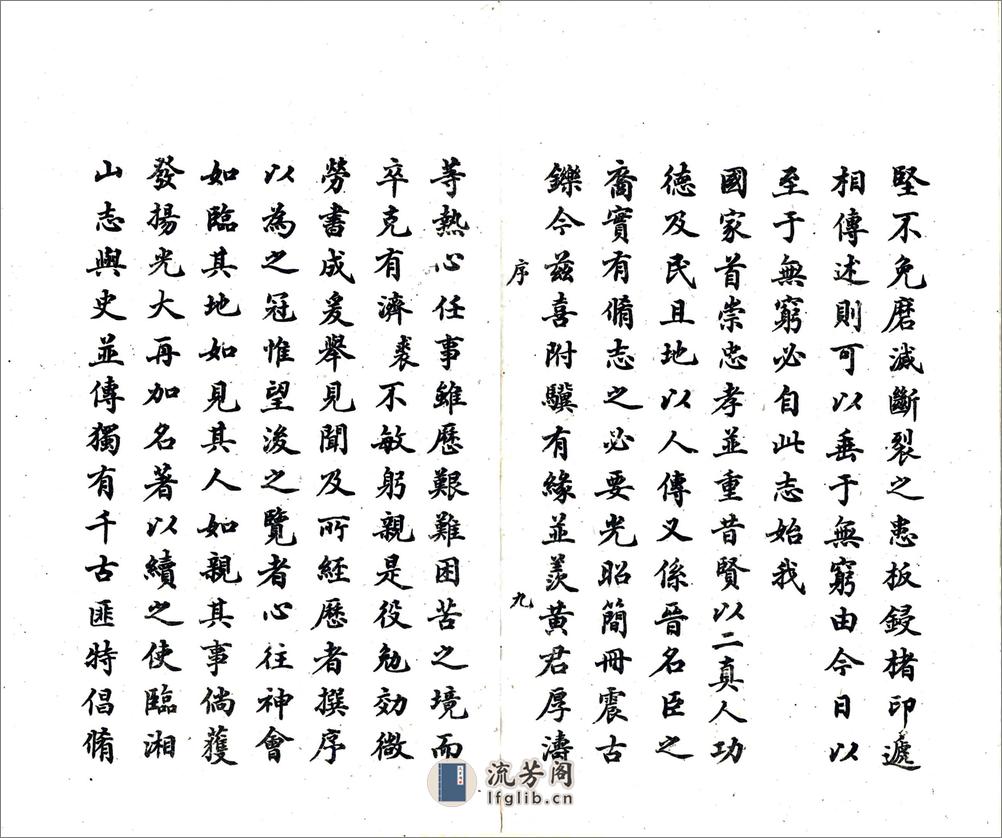 堅不免磨滅斷裂之患板鋟楮印遞
相傳述則可以垂于無窮由今日以
至于無窮必自此志始我
國家首崇忠孝並重昔賢以二真人功
德及民且地以人傳又係晉名臣之
裔實有脩志之必要光昭簡冊震古
鑠今茲喜附驥有緣並羨黃君厚濤
序
九
等熱心任事雖歷艱難困苦之境而
卒克有濟裘不敏躬親是役勉効微
勞書成爰舉見聞及所經歷者撰序
以為之冠惟望後之覽者心往神會
如臨其地如見其人如親其事倘獲
發揚光大再加名著以續之使臨湘
山志與史並傳獨有千古匪特倡脩
流芳阁
lfglib.cn